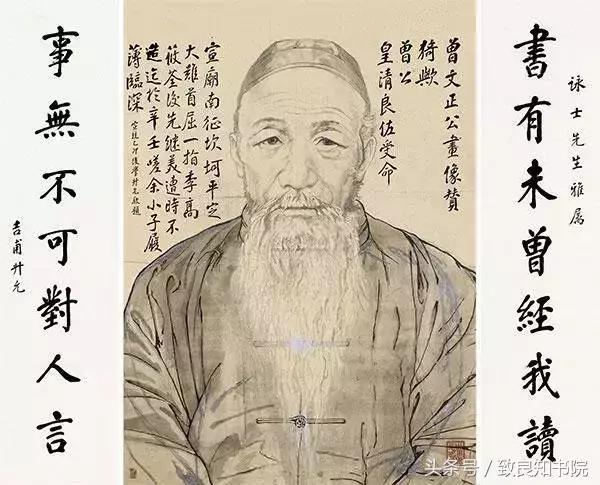 詠士先生雅屬
書有未曾經我讀
曾文正公畫像贊
猗歟
曾公
皇清良佐受命
宣廟南征坎坷平定
大難首屈一指李高
筱荃後先繼美遭時不
造迄於辛壬嗟余小子履
薄臨深
事無不可對人言
吉甫升允
头条号 / 致良知书院